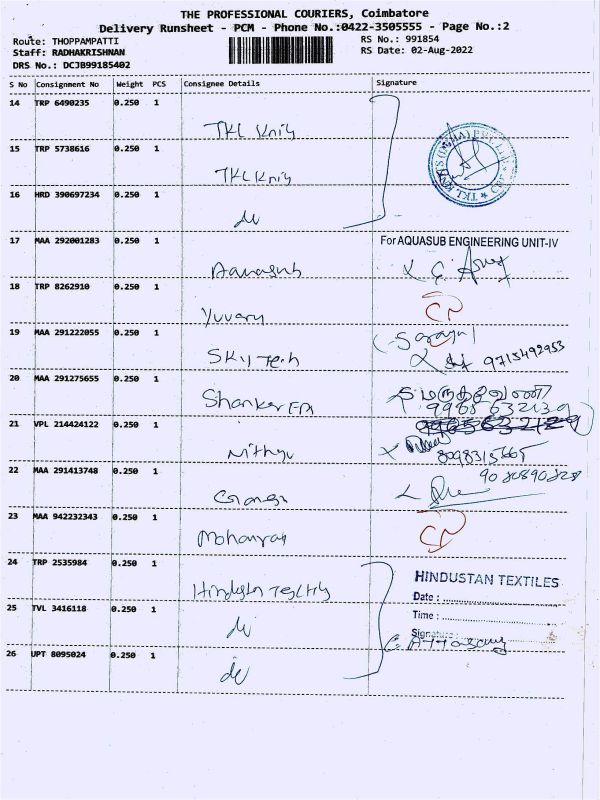 THE PROFESSIONAL COURIERS, Coimbatore
Delivery Runsheet - PCM - Phone No.:0422-3505555 - Page No.:2
Route: THOPPAMPATTI
RS No.: 991854
Staff: RADHAKRISHNAN
RS Date: 02-Aug-2022
DRS No.: DCJB99185402
S No Consignment No Weight PCS Consignee Details Signature
14 TRP 6490235 0.250 1
TKL Knits
15 TRP 5738616 0.250 1
TKL Knits
16 HRD 390697234 0.250 1
TKL KNITS (INDIA) PVT LTD * CBE *
17 MAA 292001283 0.250 1
For AQUASUB ENGINEERING UNIT-IV
Aquasub
18 TRP 8262910 0.250 1
Yuvaraj
19 MAA 291222055 0.250 1
Sky Tech
9715492953
20 MAA 291275655 0.250 1
Shanker
21 VPL 214424122 0.250 1
Nithya
22 MAA 291413748 0.250 1
Ganga
23 MAA 942232343 0.250 1
Mohanraj
24 TRP 2535984 0.250 1
HINDUSTAN TEXTILES
Hindustan Textiles
Date :
25 TVL 3416118 0.250 1
Time :
Signature :
26 UPT 8095024 0.250 1